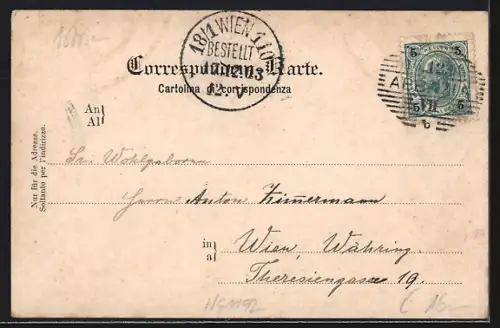 18/1 WIEN 110
BESTELLT
12.12.03
12. V
Correspondenz-Karte.
Cartolina di corrispondenza
5 5
5 5
An
Al
Nur für die Adresse.
Soltanto per l'indirizzo.
Sr. Wohlgeboren
Herrn Anton Zimmermann
in
a
Wien, Währing.
Theresiengasse 19.